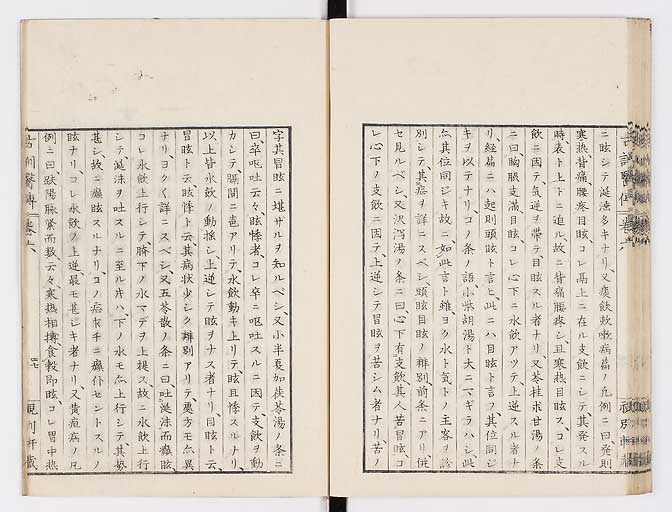 ニ眩シテ涎沫多キナリ又痰飲欬嗽病篇ノ凡例ニ曰発則
寒熱背痛腰疼目眩コレ鬲上ニ在ル支飲ニシテ其発スル
時表ト上下ニ迫ル故ニ背痛腰疼シ且寒熱目眩スコレ支
飲ニ因テ気逆ヲ帯テ目眩スル者ナリ又苓桂朮甘湯ノ条
ニ曰胸脇支満目眩コレ心下ニ水飲アツテ上逆スル者ナ
リ経篇ニハ起則頭眩ト言ヒ此ニハ目眩ト言フ其位同ジ
キヲ以テナリコノ条ノ語小柴胡湯ト大ニマギラハシ此
其位同ジキ故ニ如此言ト雖ヨク水ト気トノ主客ヲ
別シテ其ヲ詳ニスベシ頭眩目眩ノ辨別前条ニアリ併
セ見ルベシ又沢瀉湯ノ条ニ曰心下有支飲其人苦冒眩コ
レ心下ノ支飲ニ因テ上逆シテ冒眩ヲ苦シム者ナリ苦ノ
字其冒眩ニ堪サルヲ知ルベシ又小半夏加茯苓湯ノ条ニ
曰卒嘔吐云々眩悸者コレ卒ニ嘔吐スルニ因テ支飲ヲ動
カシテ膈間ニアリテ水飲動キ上リテ眩且悸スルナリ
以上皆水飲ノ動揺シ上逆シテ眩ヲナス者ナリ目眩ト云
冒眩ト云眩悸ト云其病状少シク辨別アリテ処方モ異
ナリヨクク詳ニスベシ又五苓散ノ条ニ曰吐涎沫而癲眩
コレ水飲上行シテ臍下ノ水マデヲ上提ス故ニ水飲上行
シテ涎沫ヲ吐スルニ至ル下ノ水モ上行シテ其勢
甚シ故ニ癲眩スルナリコノ症チニ癲仆セントスルノ
眩ナリコレ水飲ノ上逆最モ甚シキ者ナリ又黄疸病ノ凡
例ニ曰趺陽脉緊而数云々寒熱相摶食穀即眩コレ胃中熱
古訓医傳 巻六